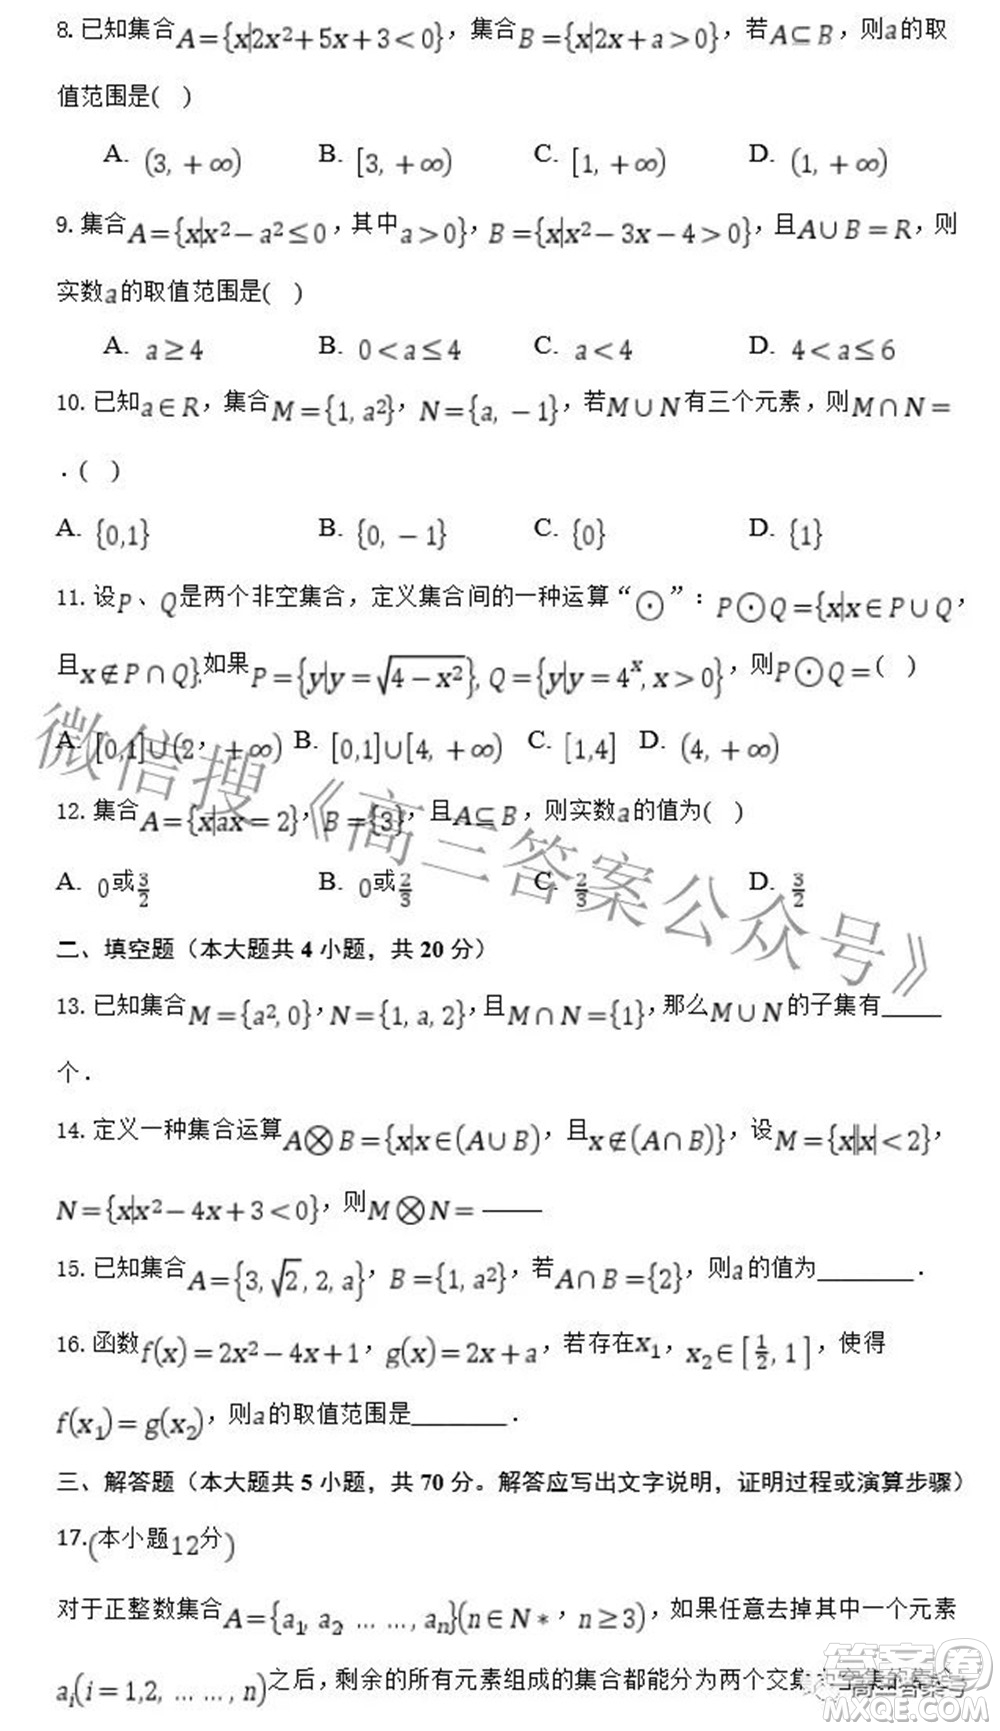 8. 已知集合A={x|2x²+5x+3<0}，集合B={x|2x+a>0}，若A⊆B，则a的取
值范围是(　)
A. (3, +∞)　B. [3, +∞)　C. [1, +∞)　D. (1, +∞)
9. 集合A={x|x²−a²≤0，其中a>0}，B={x|x²−3x−4>0}，且A∪B=R，则
实数a的取值范围是(　)
A. a≥4　B. 0<a≤4　C. a<4　D. 4<a≤6
10. 已知a∈R，集合M={1, a²}，N={a, −1}，若M∪N有三个元素，则M∩N=
. (　)
A. {0,1}　B. {0, −1}　C. {0}　D. {1}
11. 设P、Q是两个非空集合，定义集合间的一种运算“⊙”：P⊙Q={x|x∈P∪Q，
且x∉P∩Q}.如果P={y|y=√(4−x²)}, Q={y|y=4ˣ, x>0}，则P⊙Q=(　)
A. [0,1]∪(2，+∞)　B. [0,1]∪[4, +∞)　C. [1,4]　D. (4, +∞)
12. 集合A={x|ax=2}，B={3}，且A⊆B，则实数a的值为(　)
A. 0或3/2　B. 0或2/3　C. 2/3　D. 3/2
二、填空题（本大题共 4 小题，共 20 分）
13. 已知集合M={a², 0}，N={1, a, 2}，且M∩N={1}，那么M∪N的子集有_____
个．
14. 定义一种集合运算A⊗B={x|x∈(A∪B)，且x∉(A∩B)}，设M={x||x|<2}，
N={x|x²−4x+3<0}，则M⊗N=_____
15. 已知集合A={3, √2, 2, a}，B={1, a²}，若A∩B={2}，则a的值为________．
16. 函数f(x)=2x²−4x+1，g(x)=2x+a，若存在x₁，x₂∈[1/2, 1]，使得
f(x₁)=g(x₂)，则a的取值范围是________．
三、解答题（本大题共 5 小题，共 70 分。解答应写出文字说明，证明过程或演算步骤）
17.(本小题12分)
对于正整数集合A={a₁, a₂, … …, aₙ}(n∈N*，n≥3)，如果任意去掉其中一个元素
aᵢ(i=1,2, … …, n)之后，剩余的所有元素组成的集合都能分为两个交集为空集的集合
微信搜《高三答案公众号》
答案圈
高三答案号